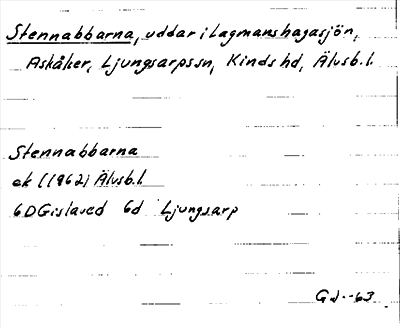 Stennabbarna, uddar i Lagmanshagasjön,
Askåker, Ljungsarps sn, Kinds hd, Älvsb. l.
Stennabbarna
ek (1962) Älvsb. l.
6D Gislaved 6d Ljungsarp
Gd -63